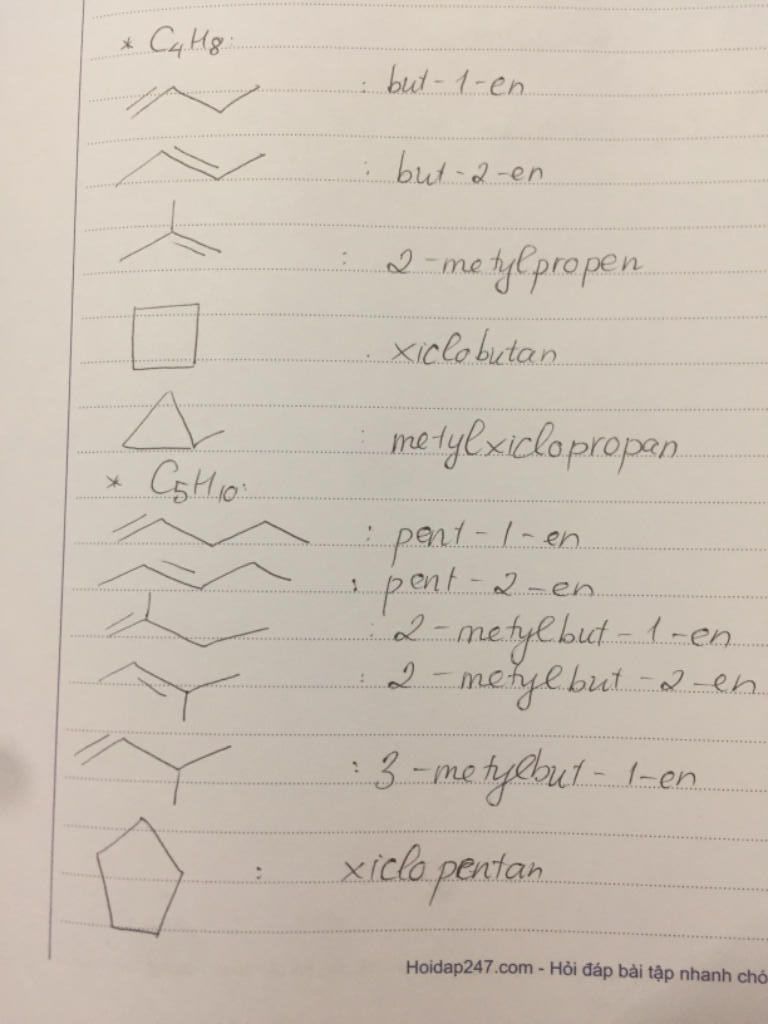 * C₄H₈:
: but-1-en
: but-2-en
: 2-metylpropen
. xiclobutan
: metylxiclopropan
* C₅H₁₀:
: pent-1-en
: pent-2-en
: 2-metylbut-1-en
: 2-metylbut-2-en
: 3-metylbut-1-en
: xiclopentan
Hoidap247.com - Hỏi đáp bài tập nhanh chó